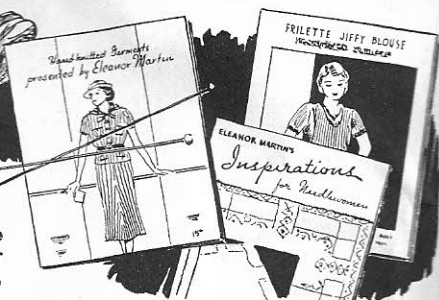 Hand-knitted Garments
presented by Eleanor Martin
15¢
FRILETTE JIFFY BLOUSE
ELEANOR MARTIN'S
Inspirations
for Needlewomen